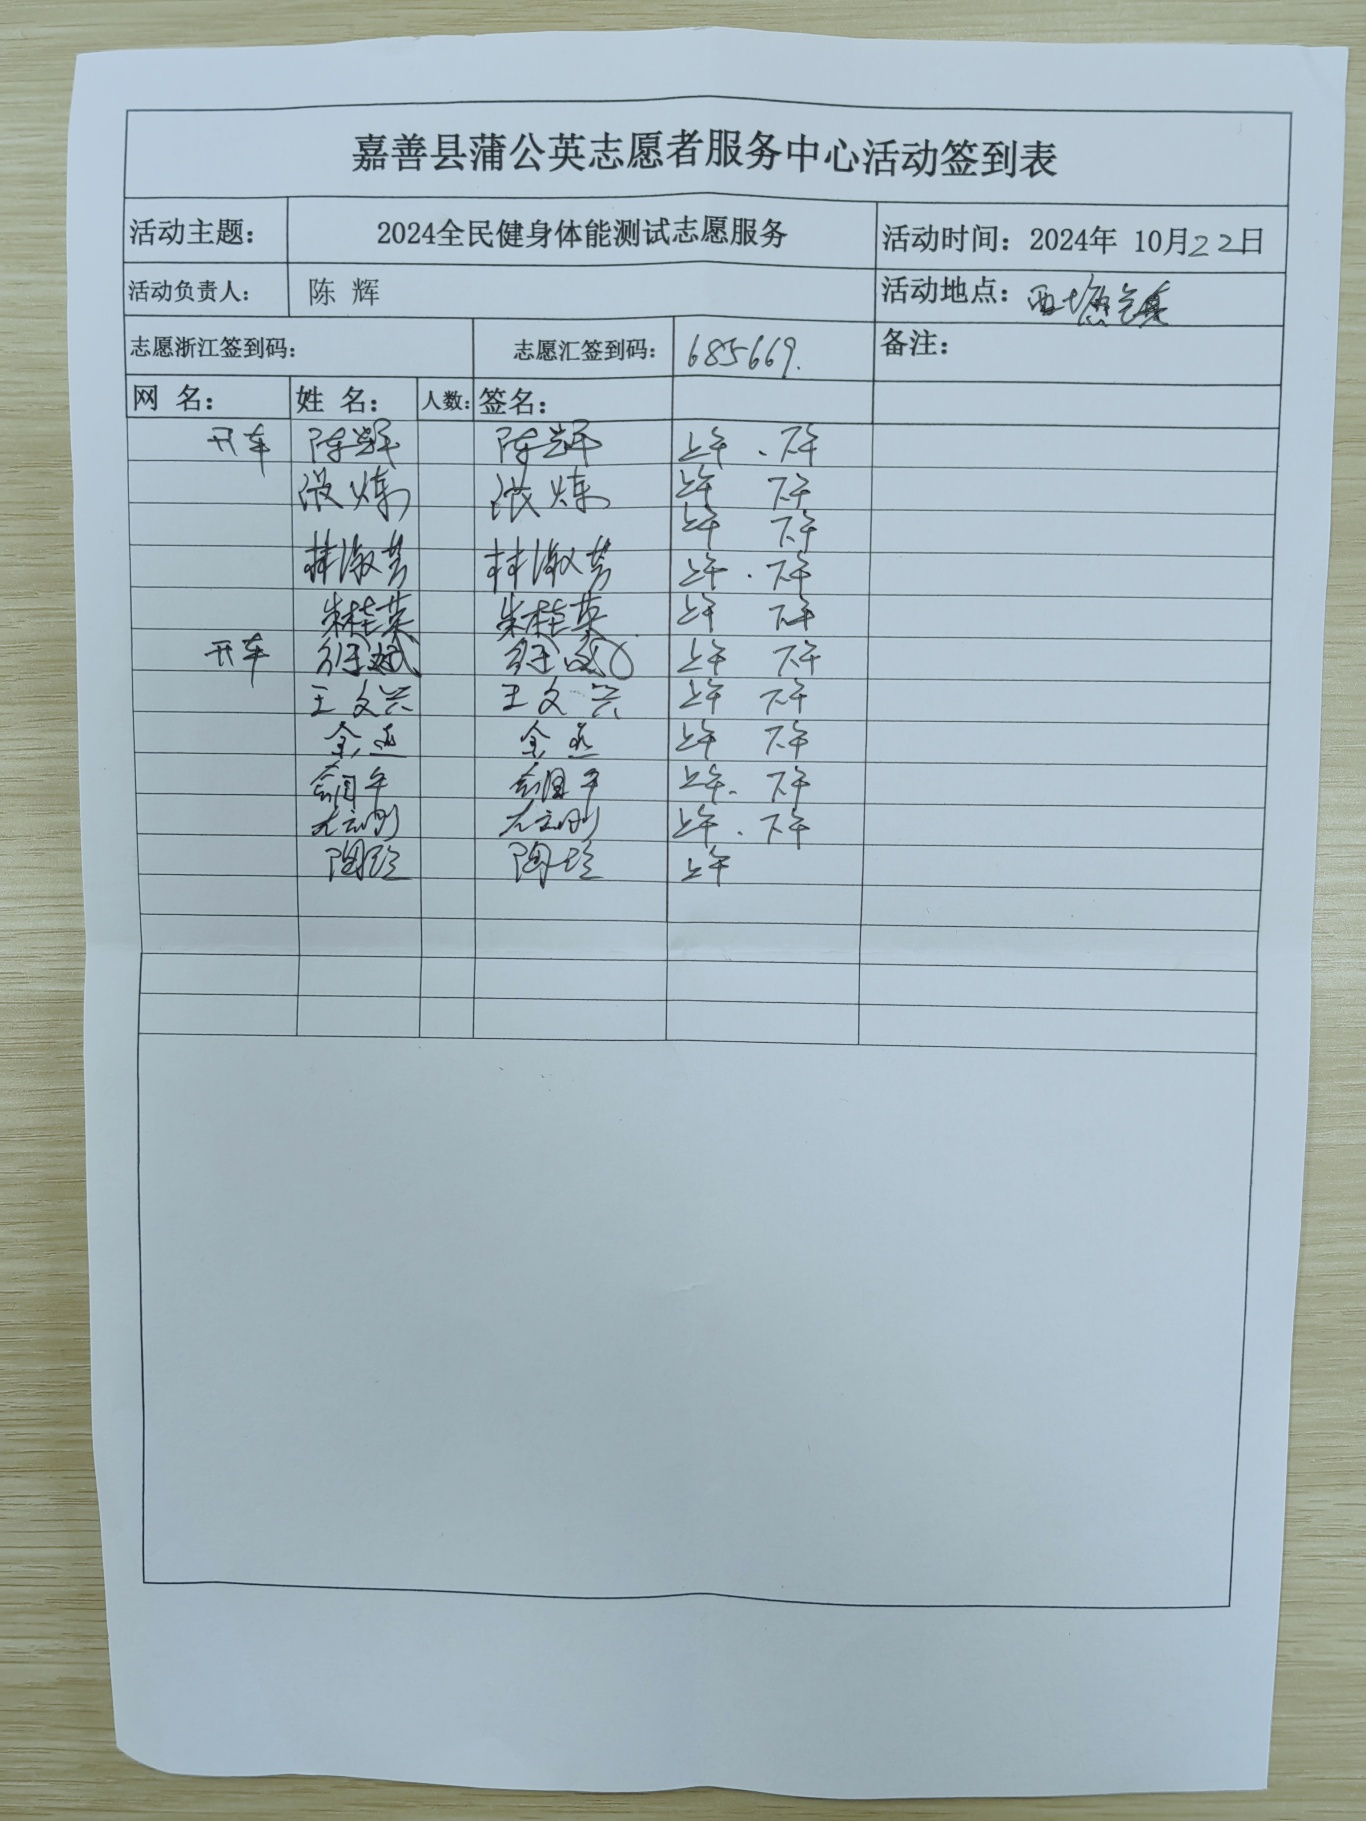 嘉善县蒲公英志愿者服务中心活动签到表
活动主题： 2024全民健身体能测试志愿服务 活动时间：2024年 10月22日
活动负责人： 陈 辉 活动地点：西塘
志愿浙江签到码： 志愿汇签到码： 685669. 备注：
网 名： 姓 名： 人数： 签名：
开车 陈辉 陈辉 上午 、下午
上午 下午
上午 下午
林淑芳 林淑芳 上午 . 下午
朱桂英 朱桂英 上午 下午
开车 上午 下午
王文兴 王文兴 上午 下午
金燕 金燕 上午 下午
上午. 下午
上午 . 下午
上午